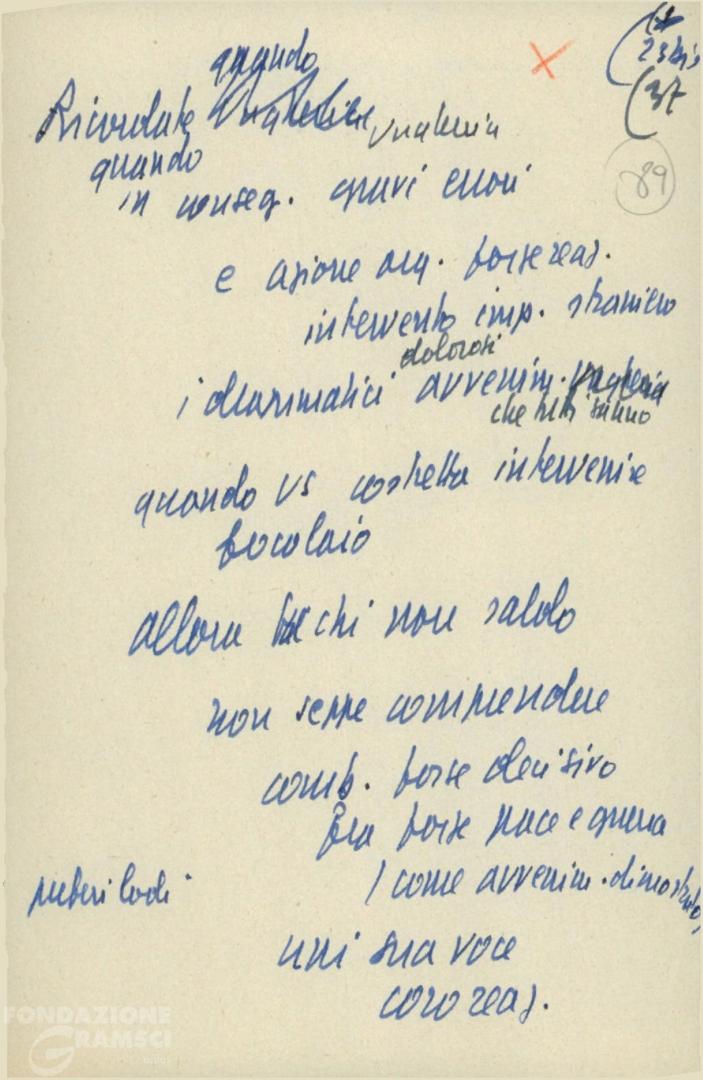 (23 bis
(37
89
quando
Ricordate Ungheria
quando
in conseg. gravi errori
e azione org. forze reaz.
intervento imp. straniero
dolorosi
i drammatici avvenim. Ungheria
che tutti sanno
quando US costretta intervenire
focolaio
allora chi non saldo
non seppe comprendere
comb. forse decisivo
fra forze pace e guerra
(come avvenim. dimostrato)
unì sua voce
coro reaz.
FONDAZIONE
GRAMSCI